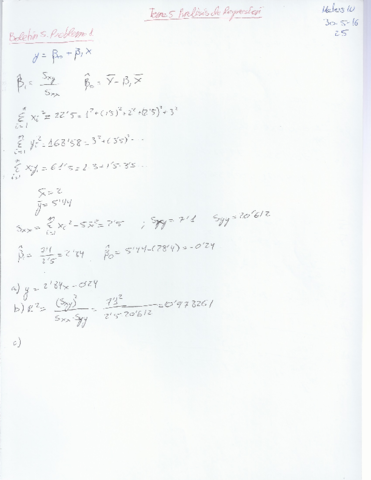 Tema 5 Análisis de Regresión
30-5-16
25
Boletín 5. Problema 1
y = β₀ - β₁ x
β̂₁ = Sxy / Sxx    β̂₀ = Y̅ - β̂₁ X̅
Σ xi² = 22'5 = 1² + (1'5)² + 2² + (2'5)² + 3²
Σ yi² = 168'58 = 3² + (3'5)² ...
Σ xiyi = 61'5 = 1·3 + 1'5·3'5 ...
x̅ = 2
y̅ = 5'44
Sxx = Σ xi² - 5x̅² = 2'5 ; Sxy = 7'1    Syy = 20'612
β̂₁ = 7'1 / 2'5 = 2'84    β̂₀ = 5'44 - (2·2'84) = -0'24
a) y = 2'84x - 0'24
b) R² = (Sxy)² / Sxx Syy = 7'1² / 2'5·20'612 = 0'978261
c)